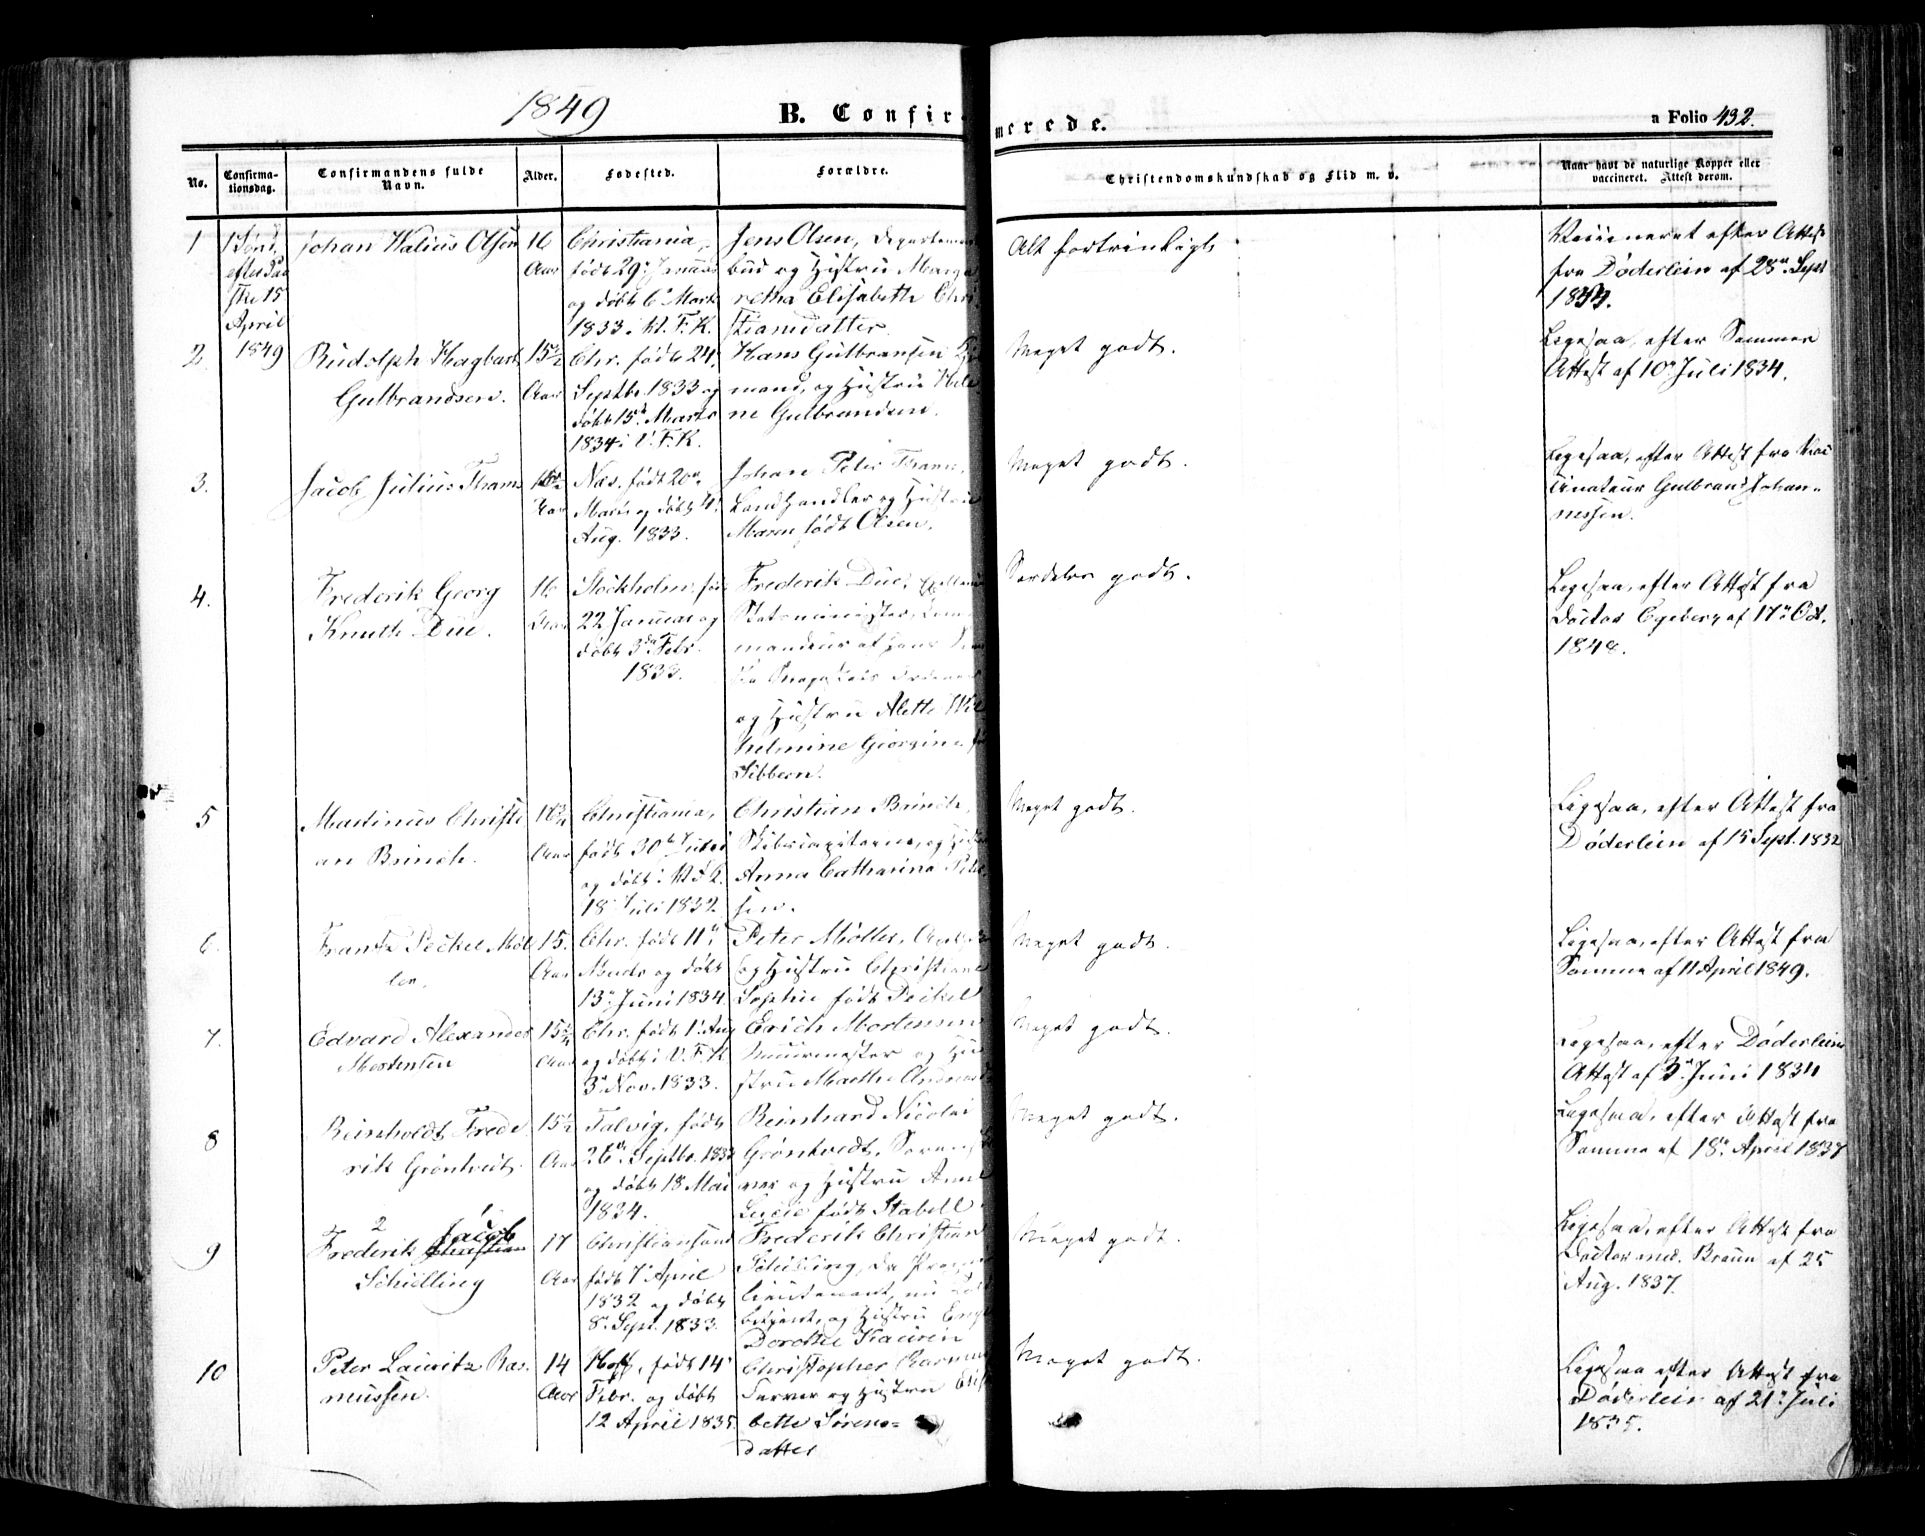 1849
B. Confirmerede.
a Folio 432.
No.
Confirma-
tionsdag.
Confirmandens fulde
Navn.
Alder.
Fødested.
Forældre.
Christendomskundskab og Flid m. v.
Naar havt de naturlige Kopper eller
vaccineret. Attest derom.
1
1 Sønd.
efter Paa
ske 15
April
1849
Johan Walius Olsen
16
Aar
Christiania,
født 29. Januar
og døbt 6. Marts
1833 i V. F. K.
Jens Olsen, Departements
bud og Hustru Marga
retha Elisabeth Chri
stiansdatter.
Alt fortrinligt.
Vaccineret efter Attest
fra Døderlein af 28de Sept
1833.
2
Rudolph Hagbart
Gulbrandsen.
15½
Aar
Chr. født 24.
Septbr. 1833 og
døbt 15d. Marts
1834 i V. F. K.
Hans Gulbransen
mand, og Hustru Hele
ne Gulbrandsen.
Meget godt.
Ligesaa, efter Sammes
Attest af 10. Juli 1834.
3.
Jacob Julius Thams
Aar
Næs. født 20de
Marts og døbt 4.
Aug. 1833.
Johan Peter Thams,
Landhandler og Hustru
Maren født Olsen.
Meget godt.
Ligesaa, efter Attest fra Vac
cinateur Gulbrand Johan-
nessen.
4.
Frederik Georg
Knuth Due.
16
Aar
Stockholm. født
22 Januar og
døbt 3die Febr.
1833.
Frederik Due, Excellence
Statsminister, Com
mandeur af Hans
Majestæts Ordener
og Hustru Alette Wil
helmine Georgine f.
Sibbern.
Særdeles godt.
Ligesaa, efter Attest fra
Doctor Egeberg af 17de Oct.
1848.
5
Martinus Christi
an Brinch.
16¾
Aar
Christiania,
født 30te Juni
og døbt
18. Juli 1832.
Christian Brinch,
Skibscapitaine, og Hustru
Anna Catharina Peter
sen.
Meget godt.
Ligesaa, efter Attest fra
Døderlein af 15 Sept. 1832
6.
Frantz Peckel Møl
ler.
15.
Aar
Chr. født 11te
Marts og døbt
13. Juni 1834.
Peter Møller,
og Hustru Christiane
Sophie født Peckel
Meget godt.
Ligesaa, efter Attest fra
Samme af 11 April 1849.
7.
Edvard Alexander
Mortensen
15½
Aar
Chr. født 1. Aug
og døbt i V. F. K
3. Nov. 1833.
Erich Mortensen
Muurmester og Hu
stru Marthe
Meget godt.
Ligesaa, efter Døderleins
Attest af 3. Juni 1834
8
Reinholdt Frede
rik Grøntvedt.
15½
Aar
Talvig, født
26de Septbr. 1833
og døbt 18 Mai
1834.
Reinhard Nicolai
Grøntvedt, Sorenskri
ver og Hustru Anne
Lucie født Stabell
Meget godt.
Ligesaa, efter Attest fra
Samme af 18de April 1837
9
2 1
Frederik Christian Jacob
Schilling
17
Aar
Christianssand
født 7. April
1832 og døbt
8. Sept. 1833.
Frederik Christian
Schilling, da Premier
lieutenant, nu Told
betjent, og Hustru
Dorothe Kaurin
Meget godt.
Ligesaa, efter Attest fra
Doctor med. Bruun af 25
Aug. 1837.
10
Peter Lauritz Ras
mussen.
14
Aar
Hoff, født 14.
Febr. og døbt
12 April 1835.
Christopher Rasmus
Farver og Hustru Elisa
bethe Sørens-
datter
Meget godt.
Ligesaa efter Attest fra
Døderlein af 21. Juli
1835.